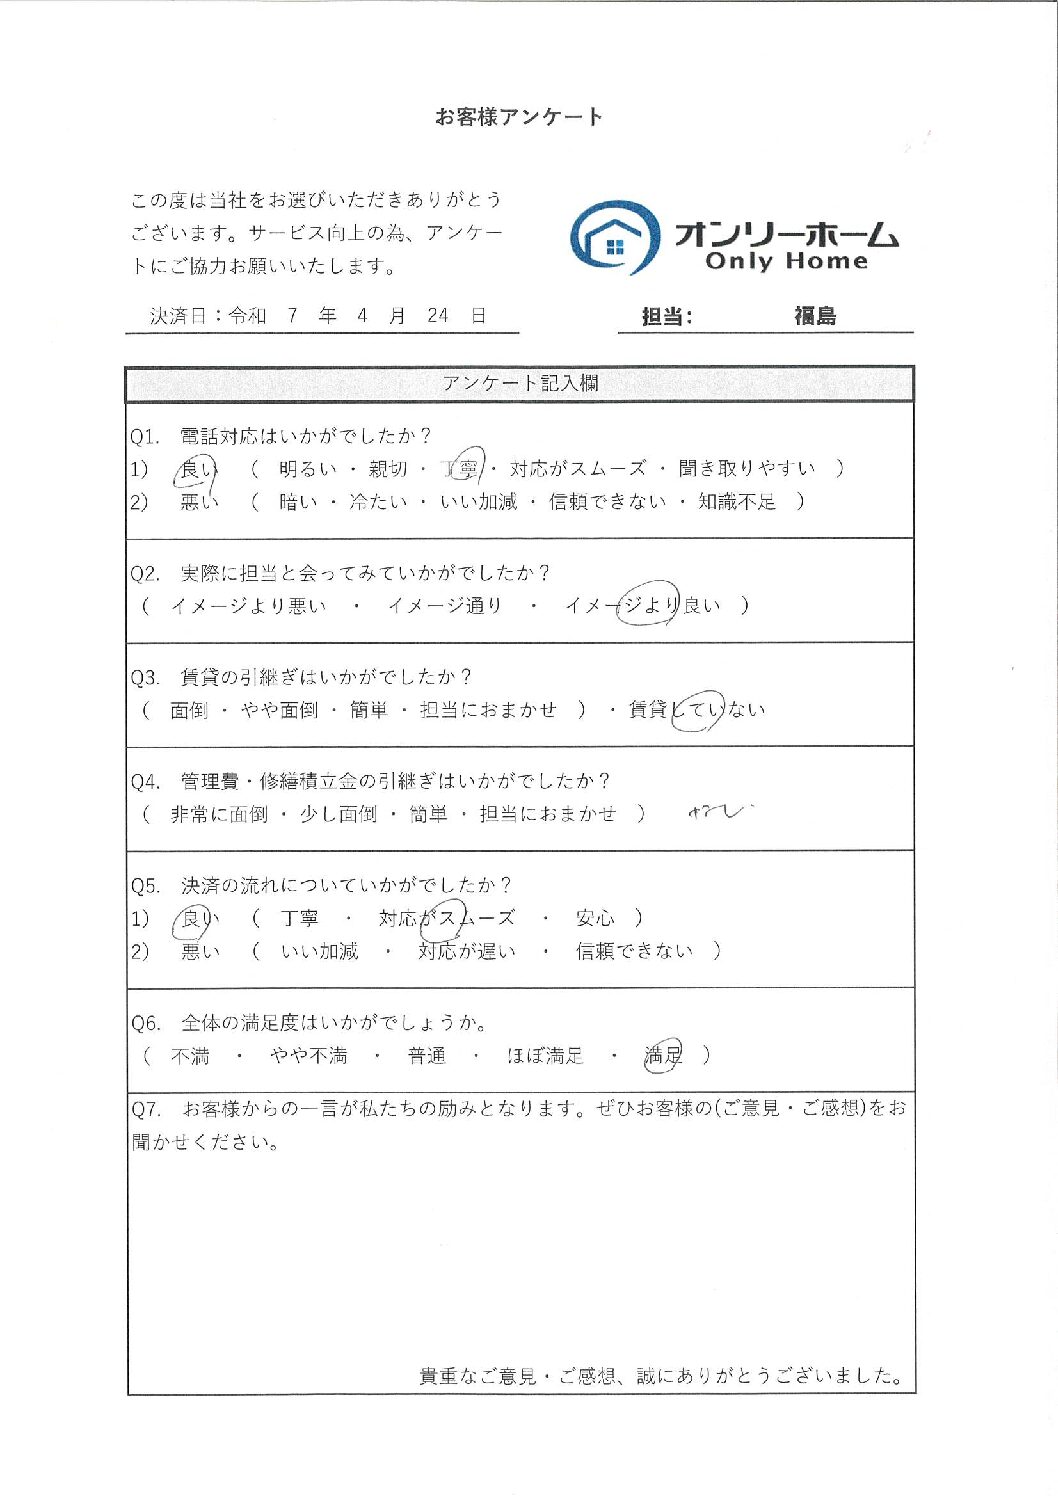 お客様アンケート
この度は当社をお選びいただきありがとう
ございます。サービス向上の為、アンケー
トにご協力お願いいたします。
オンリーホーム
Only Home
決済日：令和 7 年 4 月 24 日
担当： 福島
アンケート記入欄
Q1. 電話対応はいかがでしたか？
1) 良い （ 明るい ・ 親切 ・ 丁寧 ・ 対応がスムーズ ・ 聞き取りやすい ）
2) 悪い （ 暗い ・ 冷たい ・ いい加減 ・ 信頼できない ・ 知識不足 ）
Q2. 実際に担当と会ってみていかがでしたか？
（ イメージより悪い ・ イメージ通り ・ イメージより良い ）
Q3. 賃貸の引継ぎはいかがでしたか？
（ 面倒 ・ やや面倒 ・ 簡単 ・ 担当におまかせ ） ・ 賃貸していない
Q4. 管理費・修繕積立金の引継ぎはいかがでしたか？
（ 非常に面倒 ・ 少し面倒 ・ 簡単 ・ 担当におまかせ ） なし
Q5. 決済の流れについていかがでしたか？
1) 良い （ 丁寧 ・ 対応がスムーズ ・ 安心 ）
2) 悪い （ いい加減 ・ 対応が遅い ・ 信頼できない ）
Q6. 全体の満足度はいかがでしょうか。
（ 不満 ・ やや不満 ・ 普通 ・ ほぼ満足 ・ 満足 ）
Q7. お客様からの一言が私たちの励みとなります。ぜひお客様の(ご意見・ご感想)をお
聞かせください。
貴重なご意見・ご感想、誠にありがとうございました。